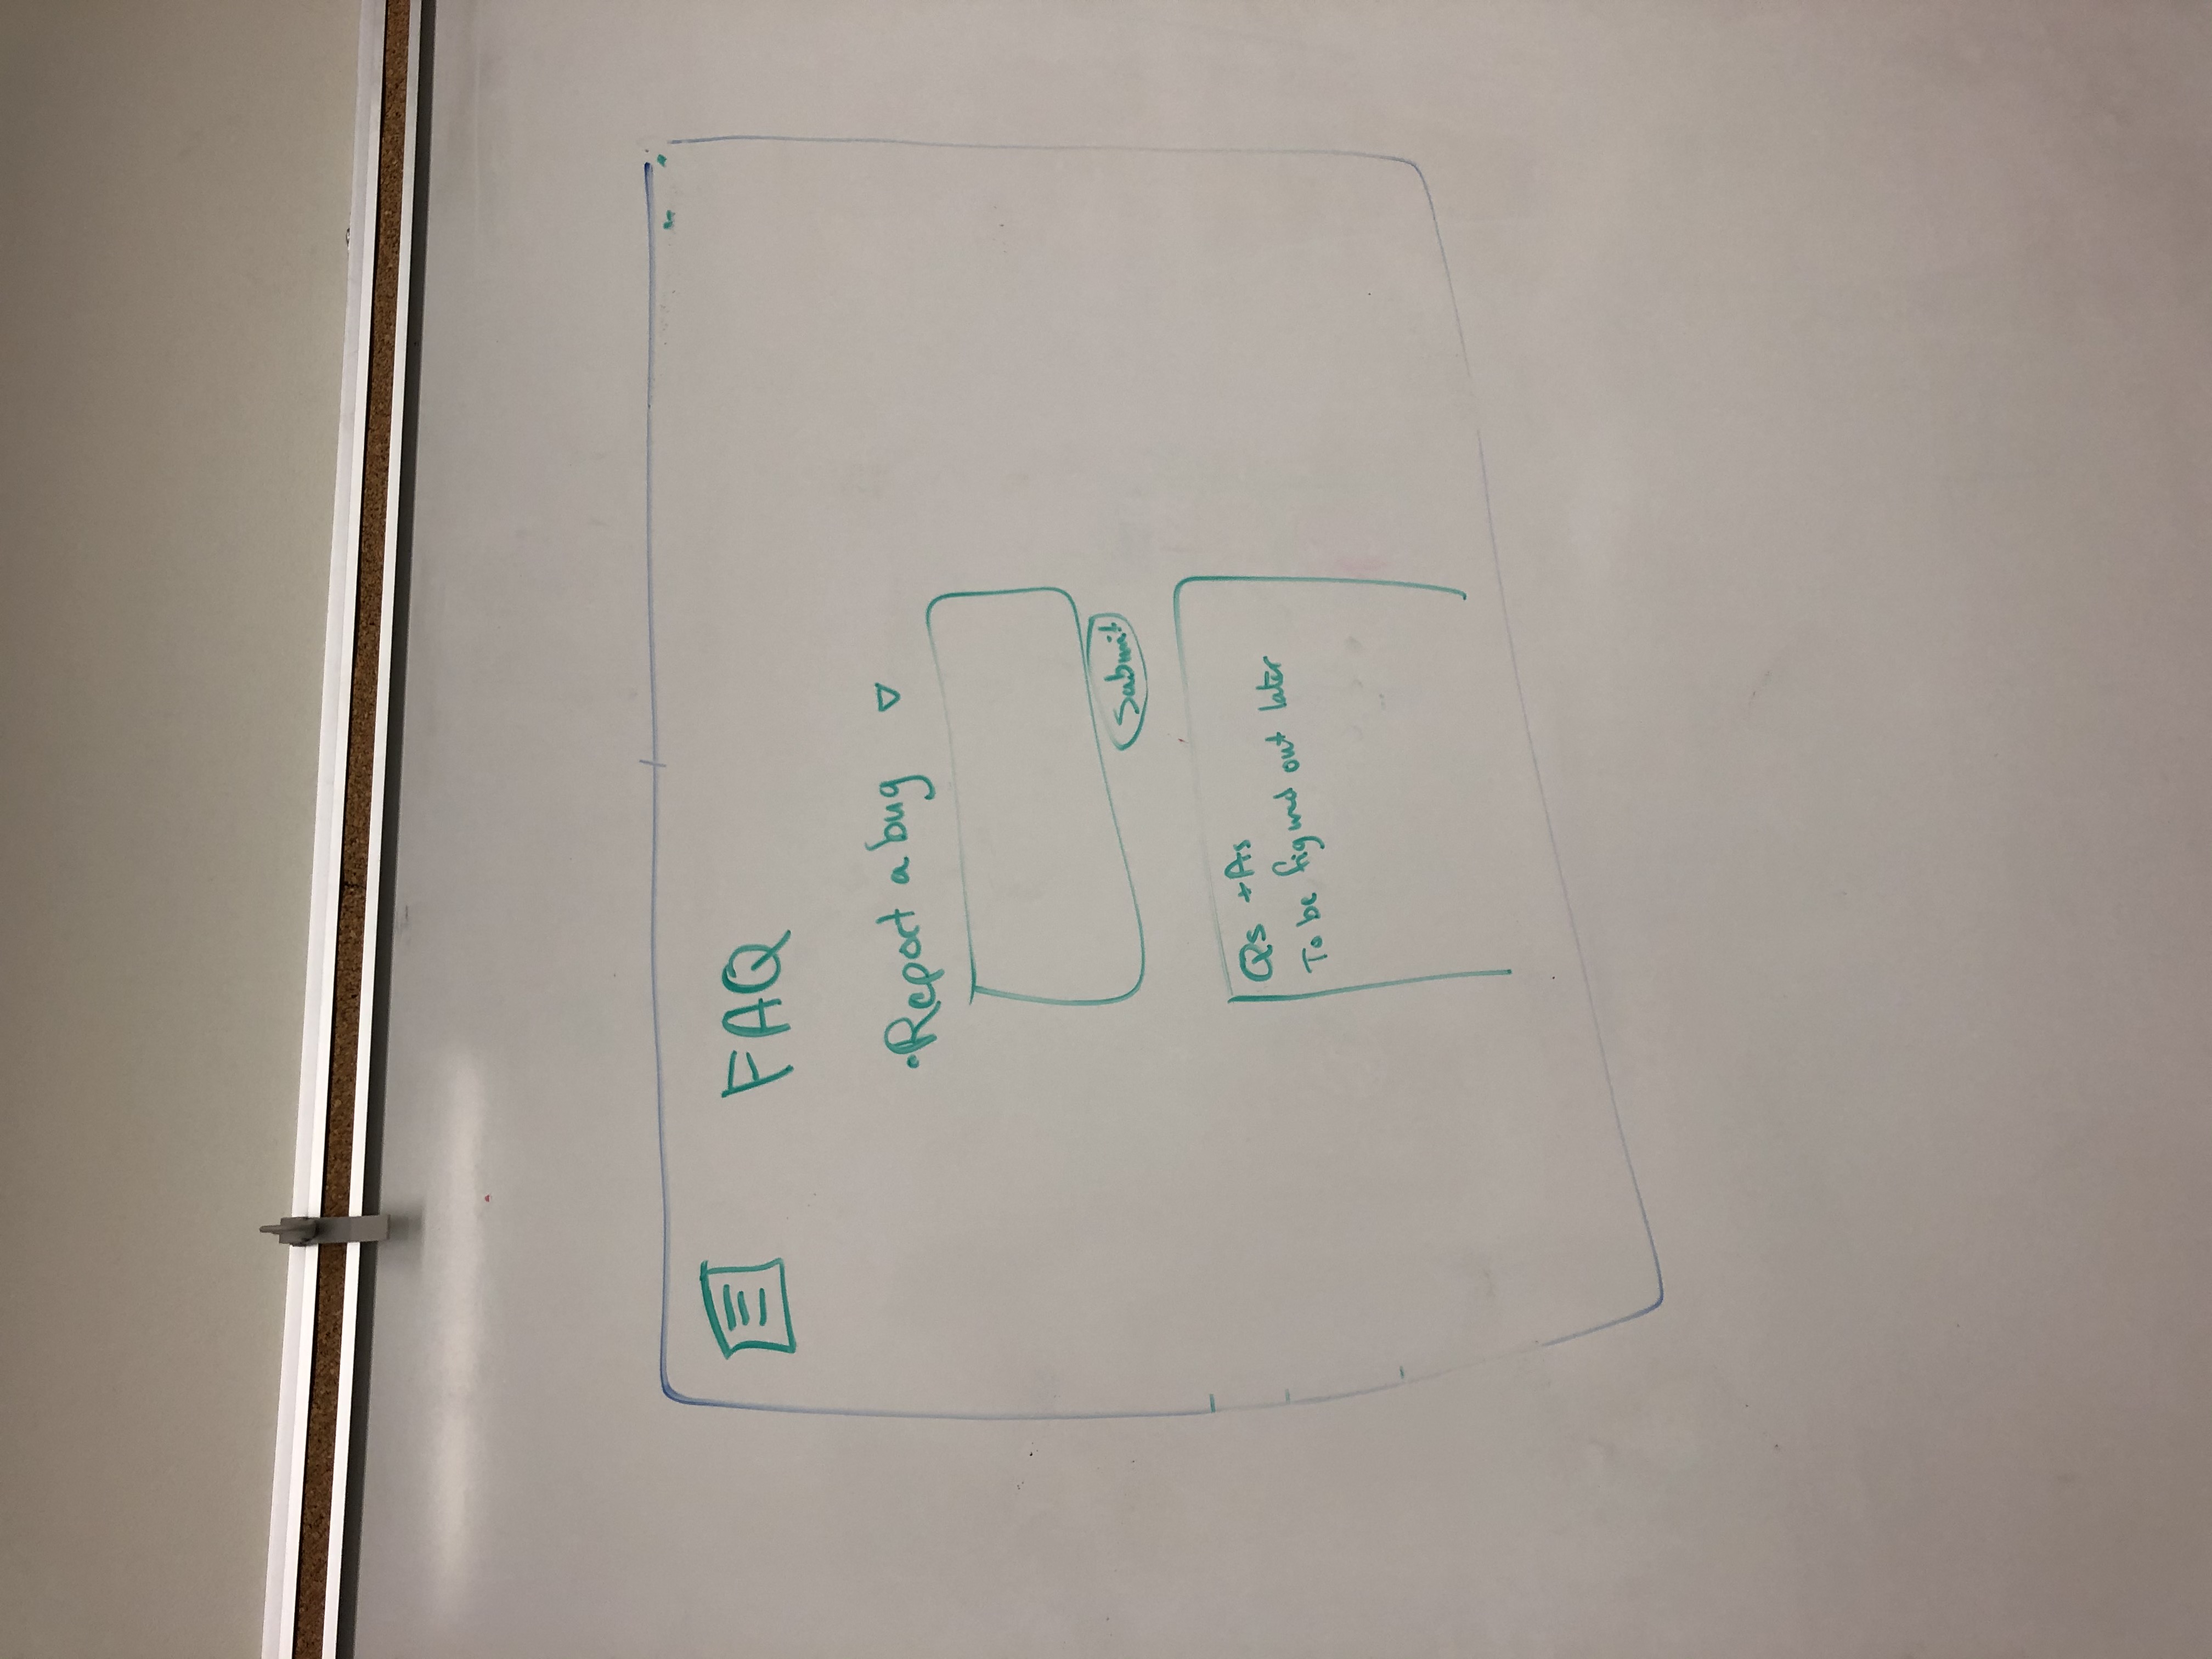 FAQ
• Report a bug ▽
Submit
Qs + As
To be figured out later